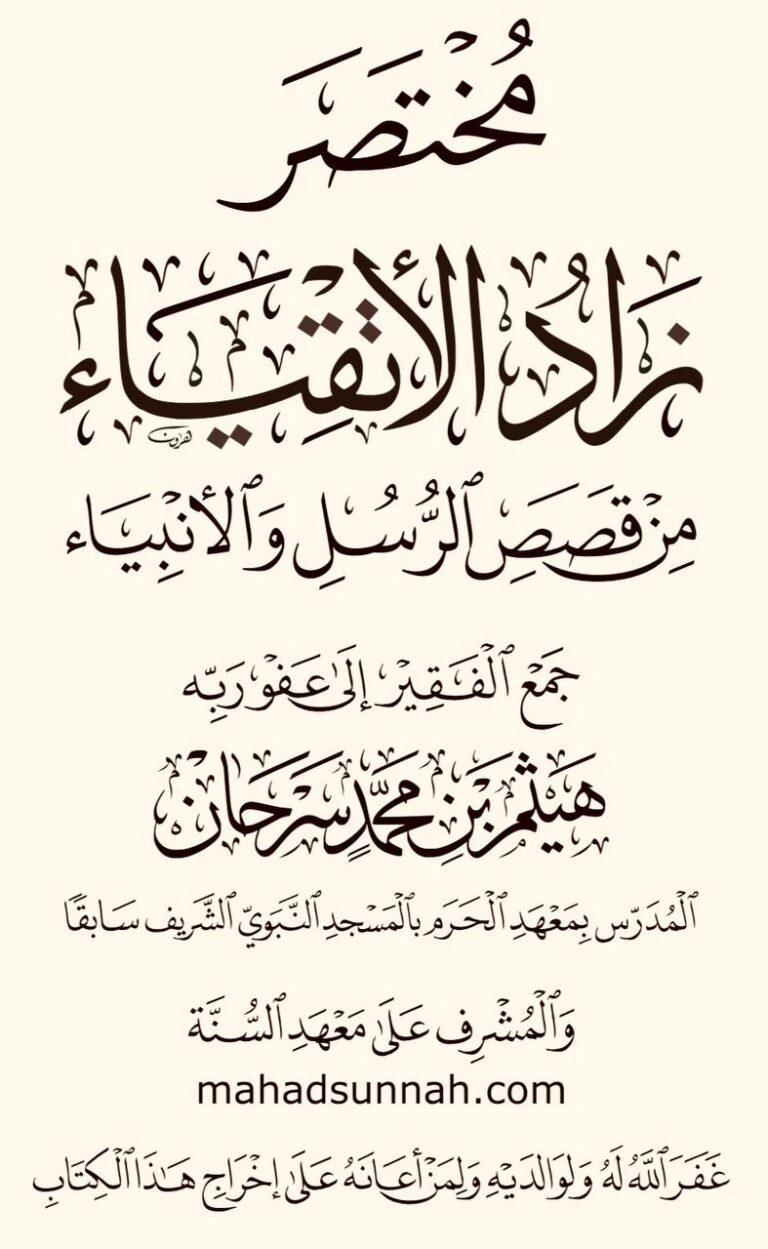 مُخْتَصَرَ
زَادُ الأَتْقِيَاء
مِنْ قَصَصِ ٱلرُّسُلِ وَٱلأَنْبِيَاء
جَمْعُ ٱلْفَقِيْرِ إِلَىٰ عَفْوِ رَبِّه
هَيْثَم بْنِ مُحَمَّدٍ سَرْحَانْ
ٱلْمُدَرِّس بِمَعْهَدِ ٱلْحَرَمِ بِٱلْمَسْجِدِ ٱلنَّبَوِيّ ٱلشَّرِيف سَابِقًا
وَٱلْمُشْرِف عَلَىٰ مَعْهَدِ ٱلسُّنَّة
mahadsunnah.com
غَفَرَ ٱللَّهُ لَهُ وَلِوَالِدَيْهِ وَلِمَنْ أَعَانَهُ عَلَىٰ إِخْرَاجِ هَـٰذَا ٱلْكِتَابِ